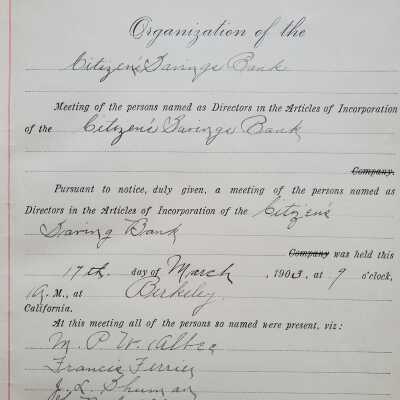 Organization of the
Citizen's Savings Bank
Meeting of the persons named as Directors in the Articles of Incorporation
of the Citizen's Savings Bank
Company.
Pursuant to notice, duly given, a meeting of the persons named as
Directors in the Articles of Incorporation of the Citizen's
Saving Bank
Company was held this
17th. day of March, 1903, at 9 o'clock,
A. M., at Berkeley,
California.
At this meeting all of the persons so named were present, viz:
M. P. W. Albee
Francis Ferrier
J. L. Shuman